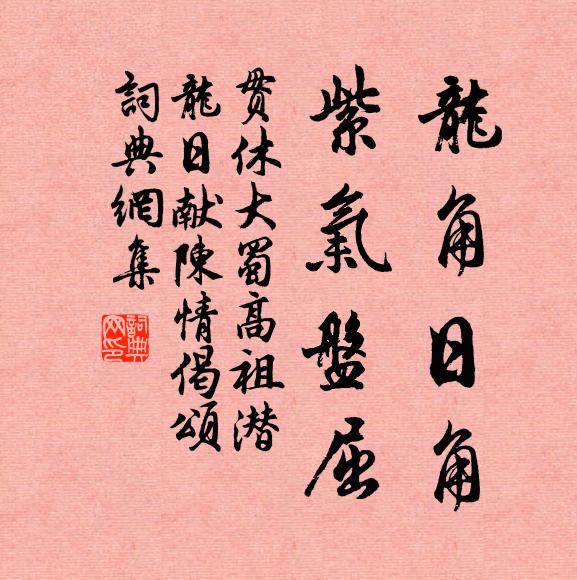 龍角日角
紫氣盤屈
貫休大蜀高祖潜
龍日献陳情偈頌
詞典網集
詞典
网印